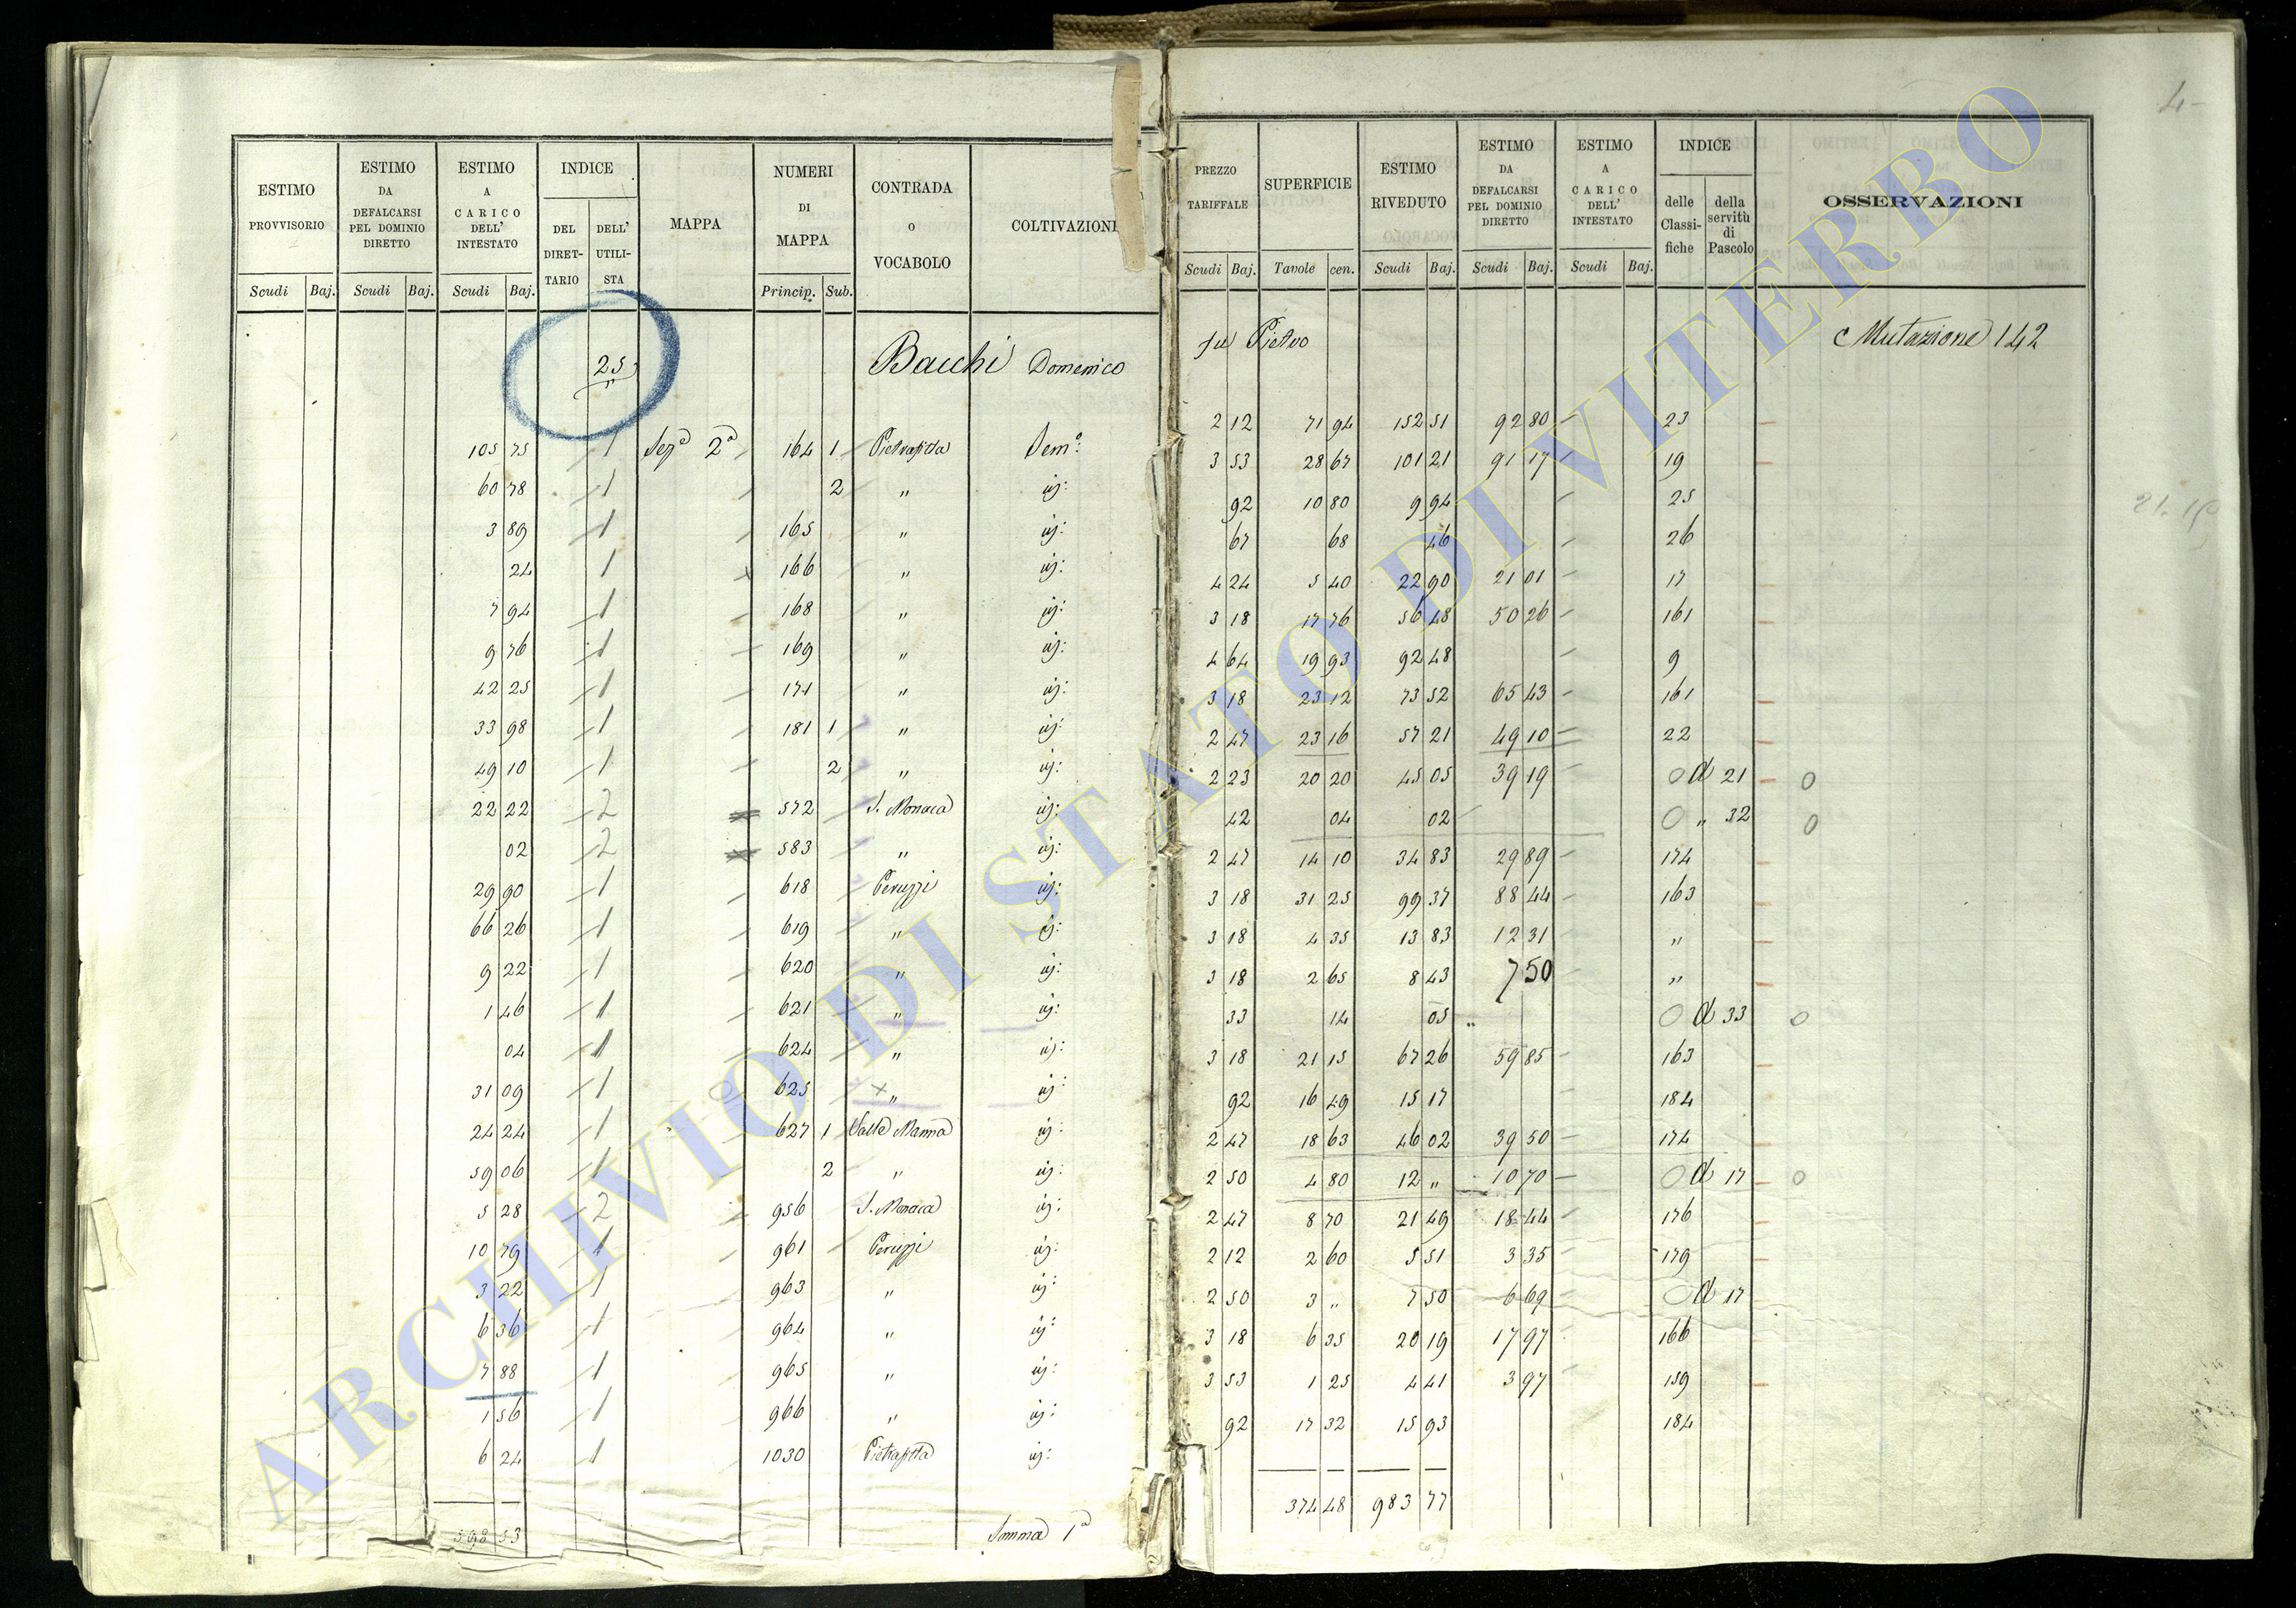 4
ESTIMO PROVVISORIO | ESTIMO DA DEFALCARSI PEL DOMINIO DIRETTO | ESTIMO A CARICO DELL' INTESTATO | INDICE | MAPPA | NUMERI DI MAPPA | CONTRADA o VOCABOLO | COLTIVAZIONI
DEL DIRET-TARIO | DELL' UTILI-STA
Scudi | Baj. | Scudi | Baj. | Scudi | Baj. | Princip. | Sub.
25 Bacchi Domenico
105 75 1 Sez.e 2a 164 1 Pietrafitta Sem.o
60 78 1 2 " id:
3 89 1 165 " id:
24 1 166 " id:
7 94 1 168 " id:
9 76 1 169 " id:
42 25 1 171 " id:
33 98 1 181 1 " id:
49 10 1 2 " id:
22 22 2 572 S. Monaca id:
02 2 583 " id:
29 90 1 618 Peruzzi id:
66 26 1 619 " id:
9 22 1 620 " id:
1 46 1 621 " id:
04 1 624 " id:
31 09 1 625 " id:
24 24 1 627 1 Valle Manna id:
59 06 1 2 " id:
5 28 2 956 S. Monaca id:
10 79 1 961 Peruzzi id:
3 22 1 963 " id:
6 36 1 964 " id:
7 88 1 965 " id:
1 56 1 966 " id:
6 24 1 1030 Pietrafitta id:
598 53 Somma 1a
PREZZO TARIFFALE | SUPERFICIE | ESTIMO RIVEDUTO | ESTIMO DA DEFALCARSI PEL DOMINIO DIRETTO | ESTIMO A CARICO DELL' INTESTATO | INDICE | OSSERVAZIONI
delle Classi-fiche | della servitù di Pascolo
Scudi | Baj. | Tavole | cen. | Scudi | Baj. | Scudi | Baj. | Scudi | Baj.
fu Pietro Mutazione 142
2 12 71 94 152 51 92 80 23
3 53 28 67 101 21 91 17 19
92 10 80 9 94 25
67 68 46 26
4 24 5 40 22 90 21 01 17
3 18 17 76 56 48 50 26 161
4 64 19 93 92 48 9
3 18 23 12 73 52 65 43 161
2 47 23 16 57 21 49 10 22
2 23 20 20 45 05 39 19 0 d 21 0
42 04 02 0 " 32 0
2 47 14 10 34 83 29 89 174
3 18 31 25 99 37 88 44 163
3 18 4 35 13 83 12 31 "
3 18 2 65 8 43 7 50 "
33 14 05 " 0 d 33 0
3 18 21 15 67 26 59 85 163
92 16 49 15 17 184
2 47 18 63 46 02 39 50 174
2 50 4 80 12 " 10 70 0 d 17 0
2 47 8 70 21 49 18 44 176
2 12 2 60 5 51 3 35 179
2 50 3 " 7 50 6 69 0 d 17
3 18 6 35 20 19 17 97 166
3 53 1 25 4 41 3 97 159
92 17 32 15 93 184
374 48 983 77
ARCHIVIO DI STATO DI VITERBO